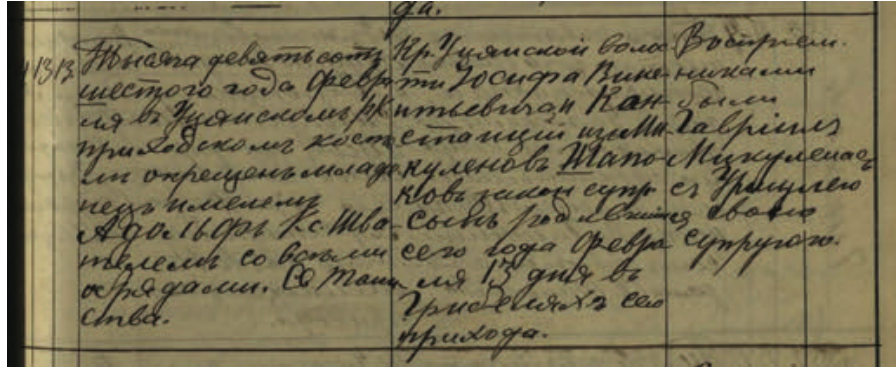 да.
13 13
Тысяча девятьсотъ
шестого года Февра
ля въ Уцянскомъ рк
приходскомъ косте
лѣ окрещенъ младе
нецъ именемъ
Адольфъ Кс. Шва
телемъ со всѣми
обрядами. Св Таин
ства.
Кр. Уцянской воло
сти Іосифа Вике
нтьевича и Кон
станціи изъ Ми
куленовъ Шапо
ковъ закон супр
сынъ родившійся
сего года Февра
ля 13 дня въ
Грибеляхъ сего
прихода.
Воспріем.
никами
были
Гавріилъ
Микуленасъ
съ Уршулею
своею
супругою.